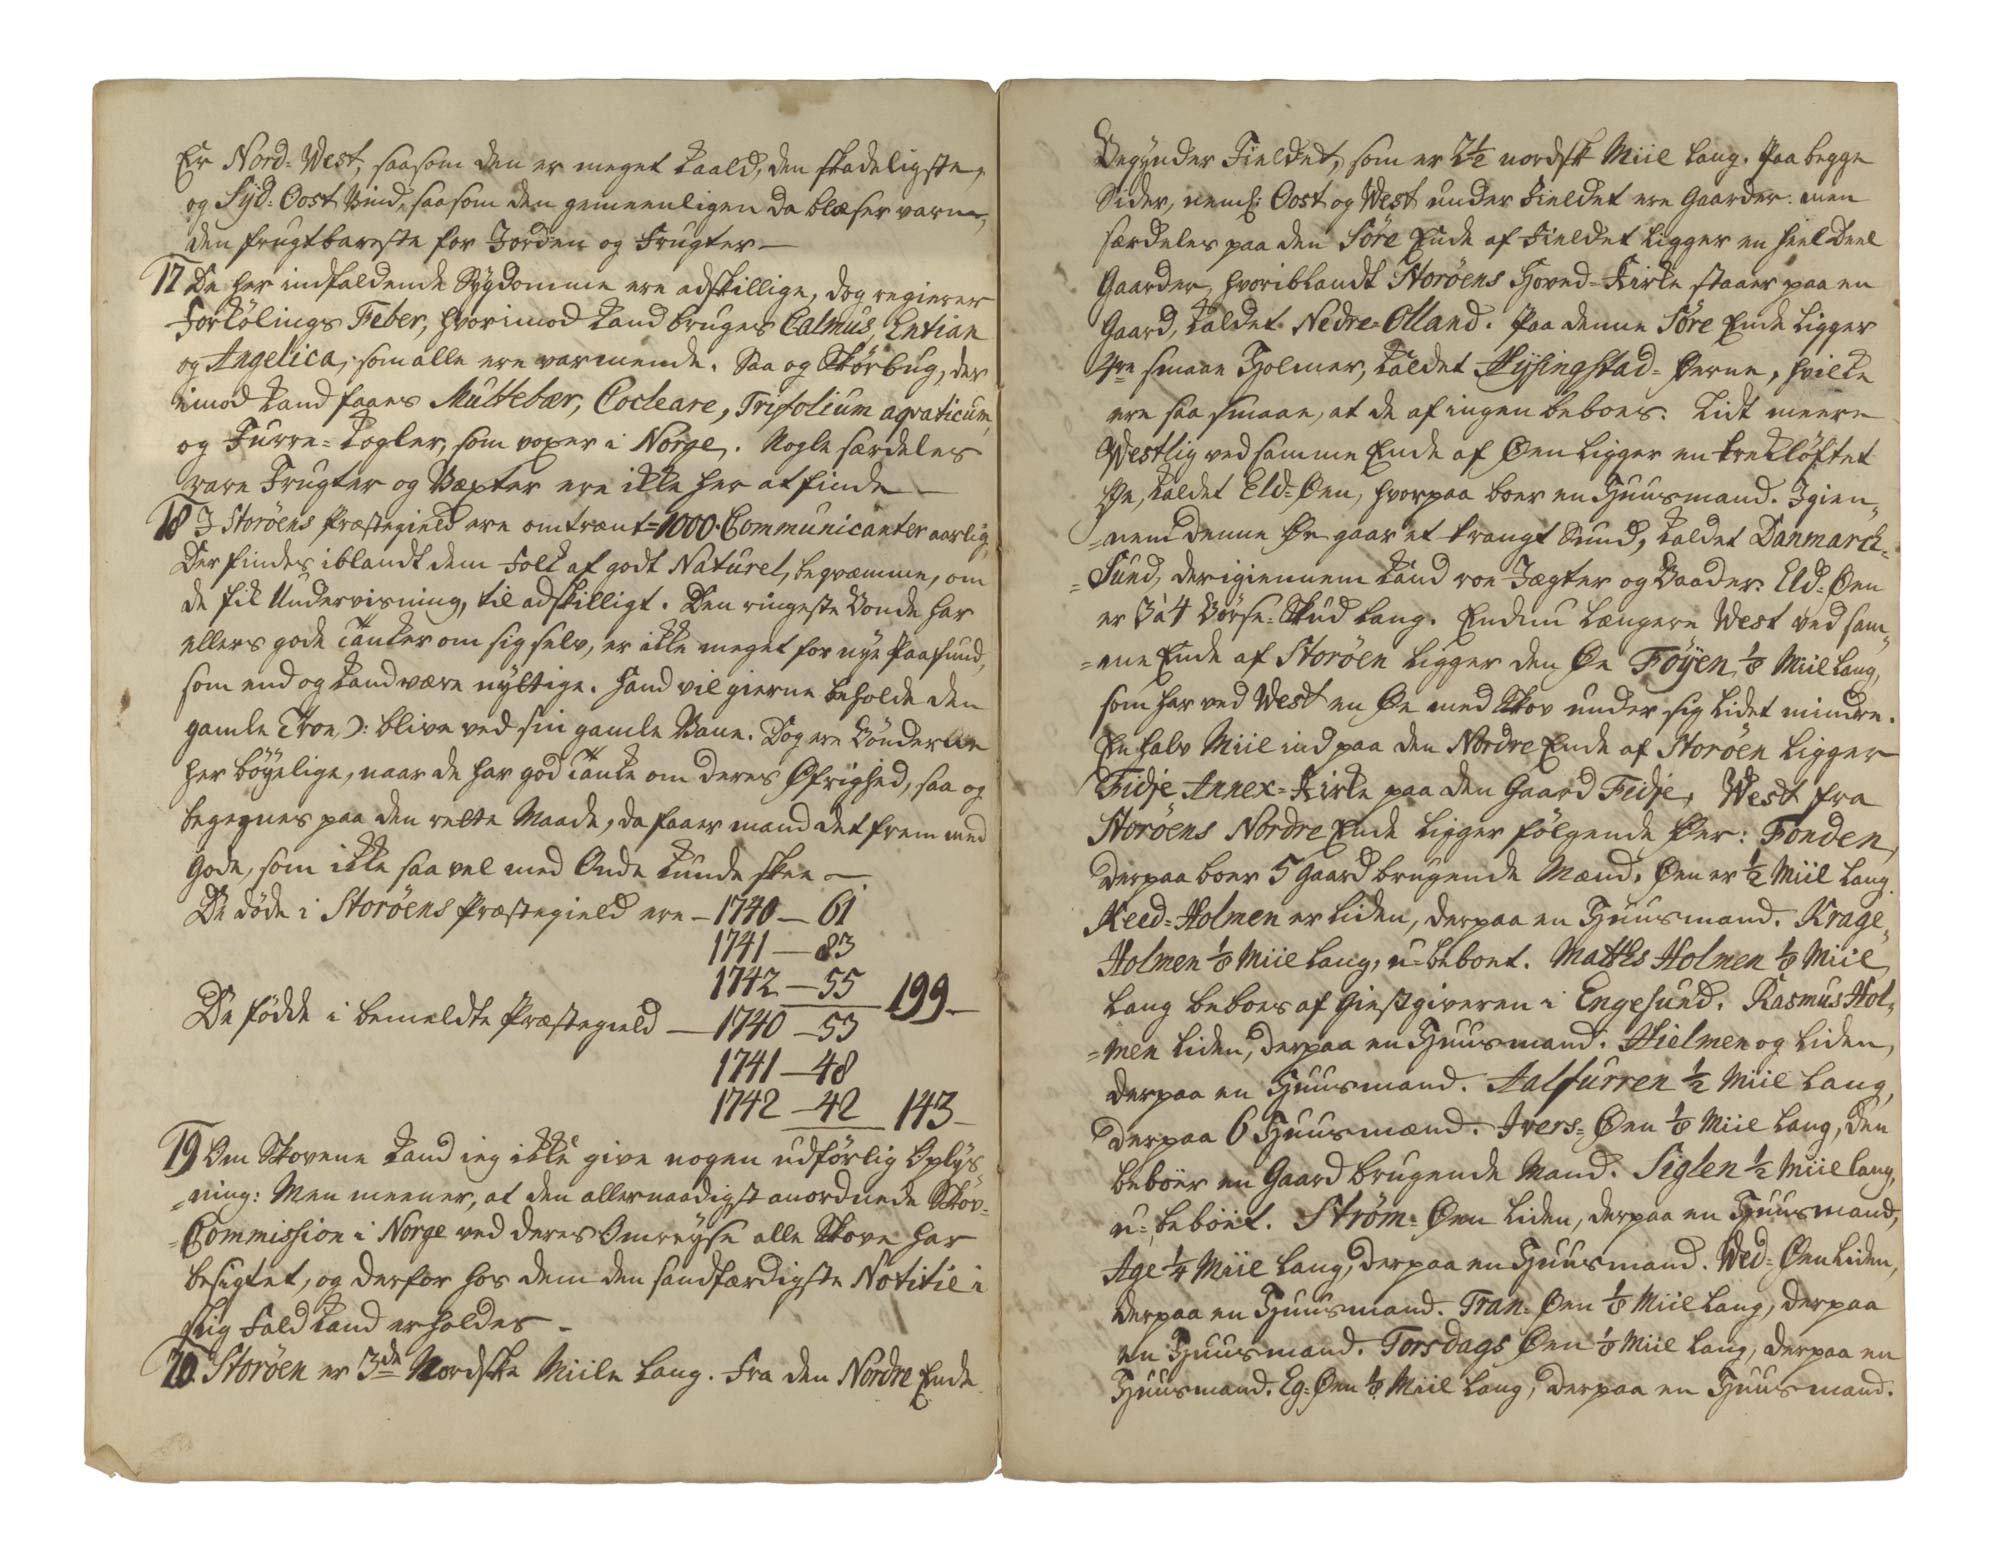 Er Nord-West, saasom den er meget kaald, den skadeligste,
og Syd-Oost Vind, saasom den gemeenligen da blæser varm,
den frugtbareste for Jorden og Frugter —
17 De her indfaldende Sygdomme ere adskillige, dog regierer
Forkölings Feber, hvorimod kand bruges Calmus, Entian
og Angelica, som alle ere varmende. Saa og Skörbug, der
imod kand faaes Multebær, Cocleare, Trifolium aqvaticum,
og Furre-Kogler, som voxer i Norge. Nogle særdeles
rare Frugter og Væxter ere ikke her at finde —
18 I Storöens Præstegield ere omtrent = 1000. Communicanter aarlig,
Der findes iblandt dem Folk af godt Naturel, beqvæmme, om
de fik Undervisning, til adskilligt. Den ringeste Bonde har
ellers gode Tanker om sig selv, er ikke meget for nye Paafund,
som end og kand være nyttige. Hand vil gierne beholde den
gamle Troe ɔ: blive ved sin gamle Vane. Dog ere Bönderne
her böyelige, naar de har god Tanke om deres Øfrighed, saa og
begegnes paa den rette Maade, da faaer mand det frem med
Gode, som ikke saa vel med Onde kunde skee —
De døde i Storöens Præstegield ere — 1740 — 61
1741 — 83
1742 — 55 199 —
De födde i bemeldte Præstegield — 1740 — 53
1741 — 48
1742 — 42 143 —
19 Om Skovene kand ieg ikke give nogen udförlig Oplys-
=ning: Men meener, at den allernaadigst anordnede Skov=
=Commission i Norge ved deres Omreyse alle Skove har
besigtet, og derfor hos dem den sandfærdigste Notitie i
slig Fald kand erholdes —
20 Storöen er 3de Nordske Miile lang. Fra den Nordre Ende
Begynder Fieldet, som er 2½ nordsk Miil lang. Paa begge
Sider, neml: Oost og West under Fieldet ere Gaarder: men
særdeles paa den Söre Ende af Fieldet ligger en heel Deel
Gaarder, hvoriblandt Storöens Hoved-Kirke staaer paa en
Gaard, kaldet Nedre-Olland. Paa denne Söre Ende ligger
4re smaae Holmer, kaldet Hysingstad-Öerne, hvilke
ere saa smaae, at de af ingen beboes. Lidt meere
Westlig ved samme Ende af Øen ligger en trekløftet
Öe, kaldet Eld-Øen, hvorpaa boer en Huusmand. Igien-
=nem denne Öe gaar et trangt Sund, kaldet Danmarck-
=Sund, derigiennem kand roe Jægter og Baader. Eld-Øen
er 3 à 4 Börse-Skud lang. Endnu længere West ved sam-
=me Ende af Storöen ligger den Øe Föyen ⅛ Miil lang,
som har ved West en Øe med Skov under sig lidet mindre.
En halv Miil ind paa den Nordre Ende af Storöen ligger
Fidje Annex-Kirke paa den Gaard Fidje, West fra
Storöens Nordre Ende ligger fölgende Öer: Fonden,
derpaa boer 5 Gaard brugende Mænd. Øen er ½ Miil lang.
Reed-Holmen er liden, derpaa en Huusmand. Krage-
Holmen ⅛ Miil lang, u-beboet. Matths Holmen ⅛ Miil
lang beboes af Giestgiveren i Engesund. Rasmus Hol-
=men liden, derpaa en Huusmand. Hielmen og liden,
derpaa en Huusmand. Aalfurren ½ Miil lang,
derpaa 6 Huusmænd. Ivers-Øen ⅛ Miil lang, den
beboer en Gaard brugende Mand. Siglen ½ Miil lang,
u-beboet. Ström-Øen liden, derpaa en Huusmand,
Age ¼ Miil lang, derpaa en Huusmand. Wed-Øen liden,
derpaa en Huusmand. Tran-Øen ⅛ Miil lang, derpaa
en Huusmand. Torsdags Øen ⅛ Miil lang, derpaa en
Huusmand. Eg-Øen ⅛ Miil lang, derpaa en Huusmand.